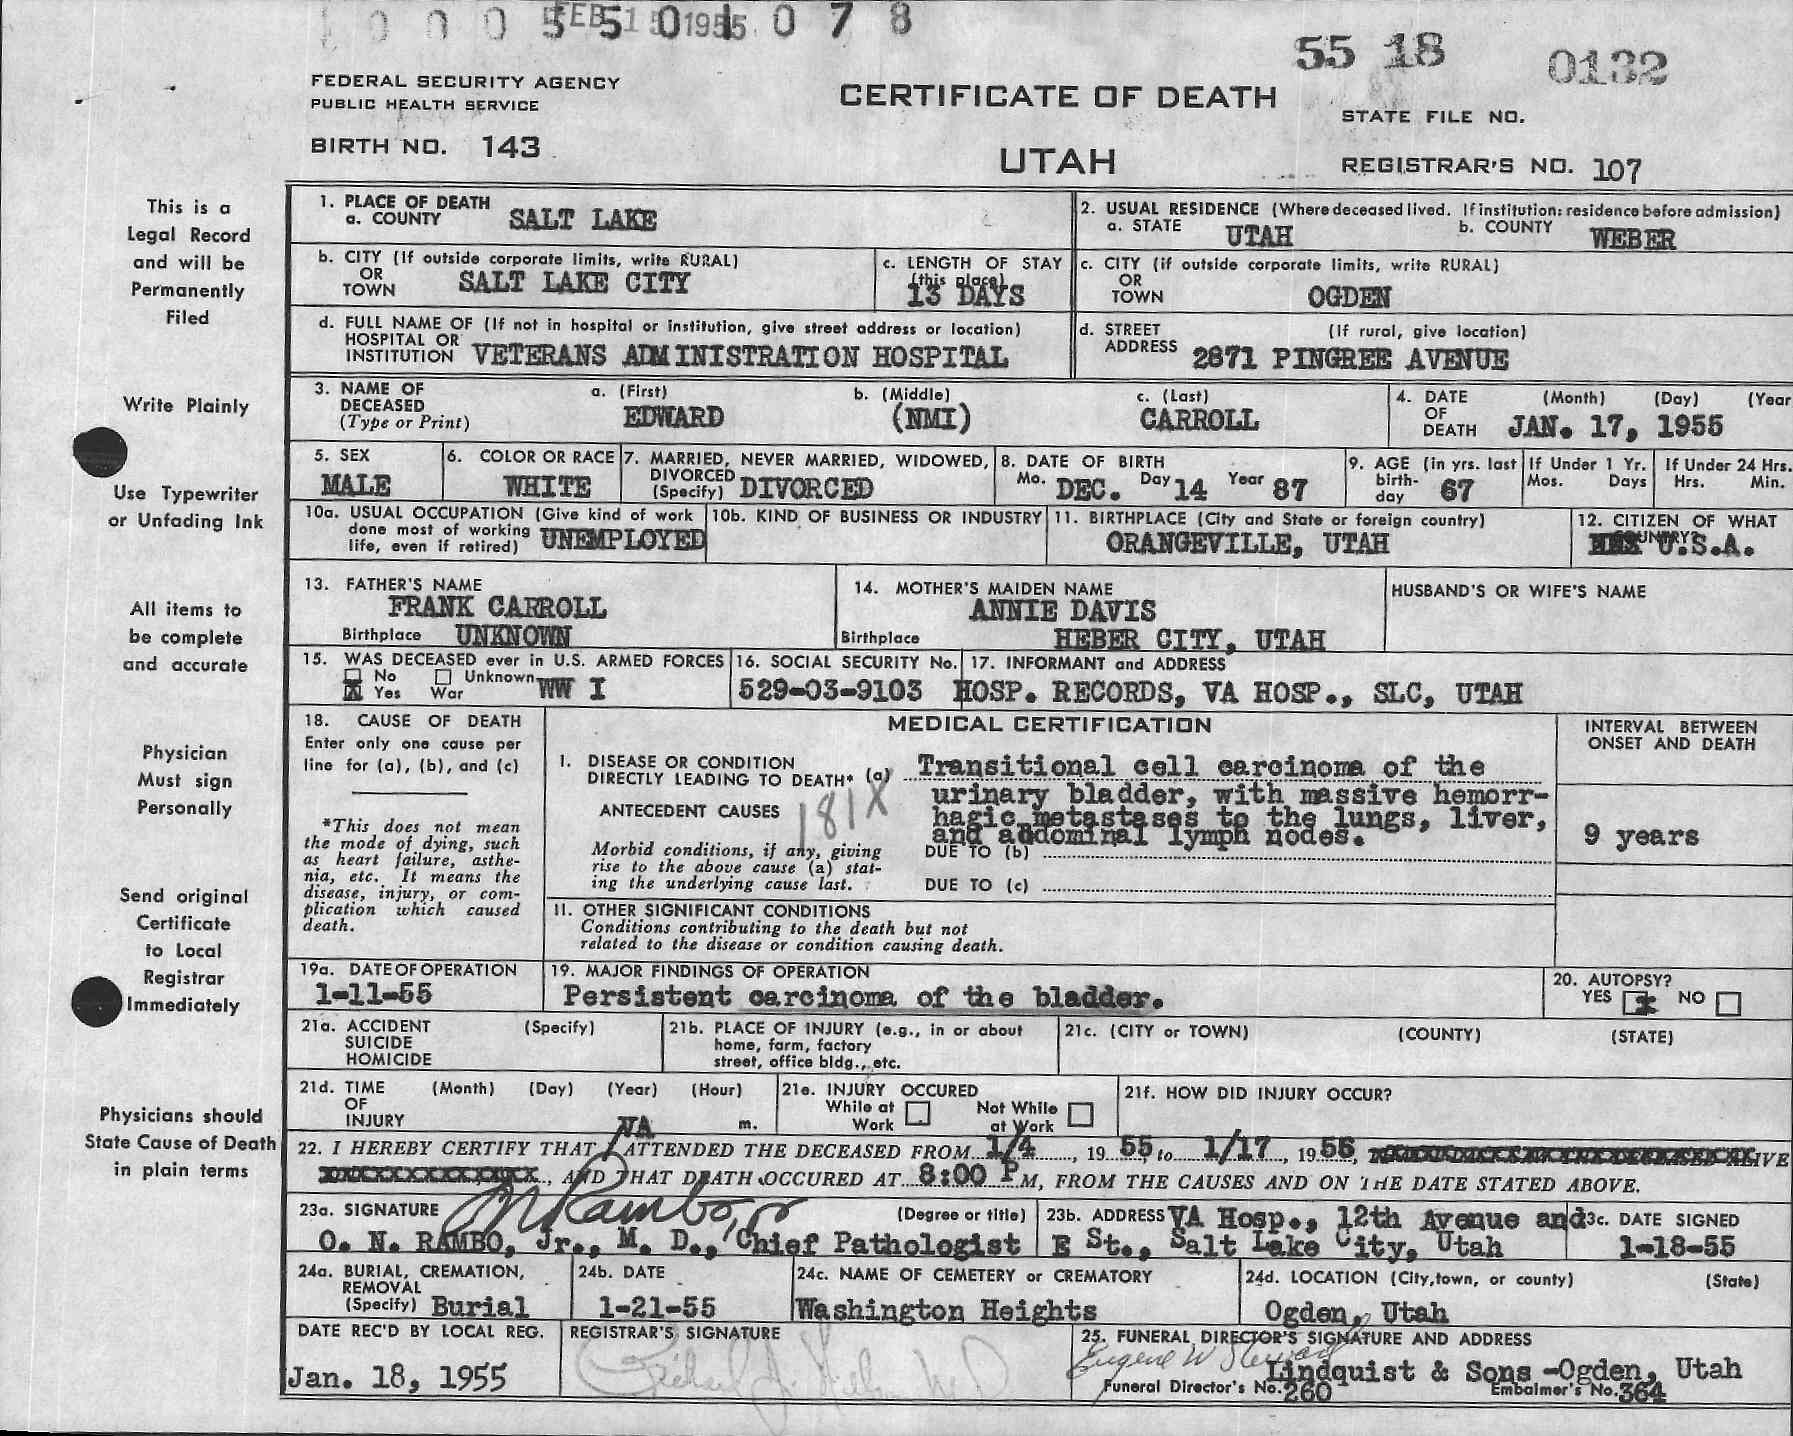 0 0 0 5 5 0 1 0 7 8
FEB 15 1955
55 18 0132
FEDERAL SECURITY AGENCY
PUBLIC HEALTH SERVICE
CERTIFICATE OF DEATH
STATE FILE NO.
BIRTH NO. 143
UTAH
REGISTRAR'S NO. 107
This is a
Legal Record
and will be
Permanently
Filed
Write Plainly
Use Typewriter
or Unfading Ink
All items to
be complete
and accurate
Physician
Must sign
Personally
Send original
Certificate
to Local
Registrar
Immediately
Physicians should
State Cause of Death
in plain terms
1. PLACE OF DEATH
a. COUNTY SALT LAKE
2. USUAL RESIDENCE (Where deceased lived. If institution: residence before admission)
a. STATE UTAH b. COUNTY WEBER
b. CITY (If outside corporate limits, write RURAL)
OR
TOWN SALT LAKE CITY
c. LENGTH OF STAY
(this place)
13 DAYS
c. CITY (if outside corporate limits, write RURAL)
OR
TOWN OGDEN
d. FULL NAME OF (If not in hospital or institution, give street address or location)
HOSPITAL OR
INSTITUTION VETERANS ADMINISTRATION HOSPITAL
d. STREET (If rural, give location)
ADDRESS 2871 PINGREE AVENUE
3. NAME OF
DECEASED
(Type or Print)
a. (First) b. (Middle) c. (Last)
EDWARD (NMI) CARROLL
4. DATE (Month) (Day) (Year
OF
DEATH JAN. 17, 1955
5. SEX
MALE
6. COLOR OR RACE
WHITE
7. MARRIED, NEVER MARRIED, WIDOWED,
DIVORCED
(Specify) DIVORCED
8. DATE OF BIRTH
Mo. DEC. Day 14 Year 87
9. AGE (in yrs. last
birth-
day 67
If Under 1 Yr.
Mos. Days
If Under 24 Hrs.
Hrs. Min.
10a. USUAL OCCUPATION (Give kind of work
done most of working
life, even if retired) UNEMPLOYED
10b. KIND OF BUSINESS OR INDUSTRY
11. BIRTHPLACE (City and State or foreign country)
ORANGEVILLE, UTAH
12. CITIZEN OF WHAT
COUNTRY?
U.S.A.
13. FATHER'S NAME
FRANK CARROLL
Birthplace UNKNOWN
14. MOTHER'S MAIDEN NAME
ANNIE DAVIS
Birthplace HEBER CITY, UTAH
HUSBAND'S OR WIFE'S NAME
15. WAS DECEASED ever in U.S. ARMED FORCES
No Unknown
X Yes War WW I
16. SOCIAL SECURITY No.
529-03-9103
17. INFORMANT and ADDRESS
HOSP. RECORDS, VA HOSP., SLC, UTAH
18. CAUSE OF DEATH
Enter only one cause per
line for (a), (b), and (c)
*This does not mean
the mode of dying, such
as heart failure, asthe-
nia, etc. It means the
disease, injury, or com-
plication which caused
death.
MEDICAL CERTIFICATION
INTERVAL BETWEEN
ONSET AND DEATH
I. DISEASE OR CONDITION
DIRECTLY LEADING TO DEATH* (a) Transitional cell carcinoma of the
urinary bladder, with massive hemorr-
hagic metastases to the lungs, liver,
and abdominal lymph nodes.
9 years
ANTECEDENT CAUSES
181X
Morbid conditions, if any, giving
rise to the above cause (a) stat-
ing the underlying cause last.
DUE TO (b)
DUE TO (c)
II. OTHER SIGNIFICANT CONDITIONS
Conditions contributing to the death but not
related to the disease or condition causing death.
19a. DATE OF OPERATION
1-11-55
19. MAJOR FINDINGS OF OPERATION
Persistent carcinoma of the bladder.
20. AUTOPSY?
YES X NO
21a. ACCIDENT (Specify)
SUICIDE
HOMICIDE
21b. PLACE OF INJURY (e.g., in or about
home, farm, factory
street, office bldg., etc.
21c. (CITY or TOWN) (COUNTY) (STATE)
21d. TIME (Month) (Day) (Year) (Hour)
OF
INJURY m.
21e. INJURY OCCURED
While at Work Not While at Work
21f. HOW DID INJURY OCCUR?
VA
22. I HEREBY CERTIFY THAT I ATTENDED THE DECEASED FROM 1/4, 19 55, to 1/17, 1955, ALIVE
, AND THAT DEATH OCCURED AT 8:00 P M, FROM THE CAUSES AND ON THE DATE STATED ABOVE.
23a. SIGNATURE (Degree or title)
O N Rambo, Jr
O. N. RAMBO, Jr., M. D., Chief Pathologist
23b. ADDRESS VA Hosp., 12th Avenue and
E St., Salt Lake City, Utah
3c. DATE SIGNED
1-18-55
24a. BURIAL, CREMATION,
REMOVAL
(Specify) Burial
24b. DATE
1-21-55
24c. NAME OF CEMETERY or CREMATORY
Washington Heights
24d. LOCATION (City, town, or county) (State)
Ogden, Utah
DATE REC'D BY LOCAL REG.
Jan. 18, 1955
REGISTRAR'S SIGNATURE
25. FUNERAL DIRECTOR'S SIGNATURE AND ADDRESS
Eugene W
Lindquist & Sons -Ogden, Utah
Funeral Director's No. 260 Embalmer's No. 364